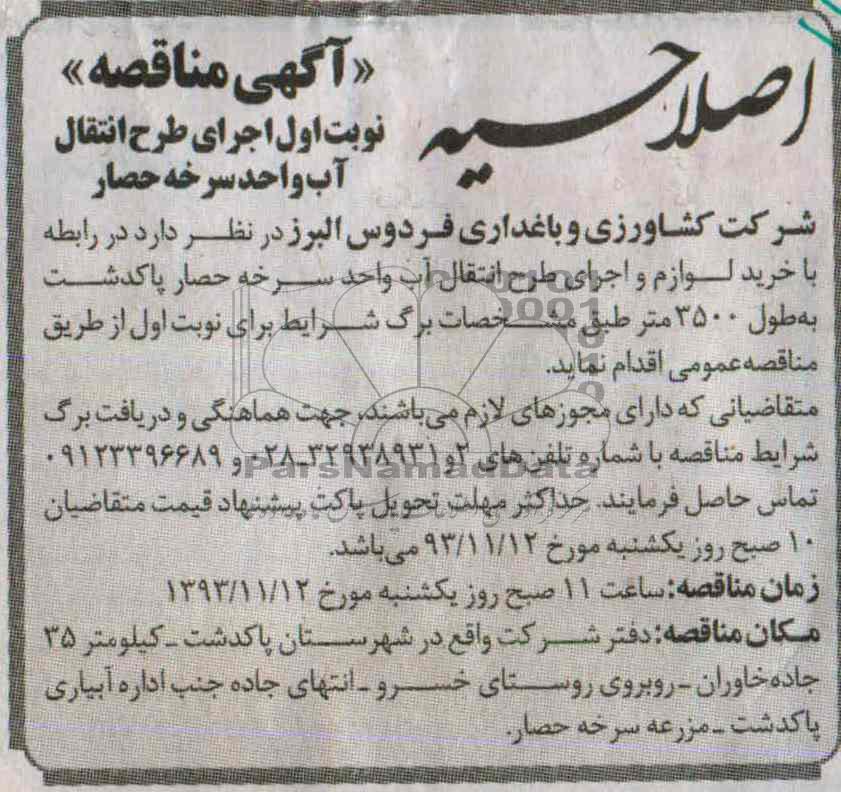 اصلاحیه
«آگهی مناقصه»
نوبت اول اجرای طرح انتقال
آب واحد سرخه حصار
شرکت کشاورزی و باغداری فردوس البرز در نظر دارد در رابطه
با خرید لوازم و اجرای طرح انتقال آب واحد سرخه حصار پاکدشت
به‌طول ۳۵۰۰ متر طبق مشخصات برگ شرایط برای نوبت اول از طریق
مناقصه عمومی اقدام نماید.
متقاضیانی که دارای مجوزهای لازم می‌باشند، جهت هماهنگی و دریافت برگ
شرایط مناقصه با شماره تلفن‌های ۲و۳۲۹۳۸۹۳۱-۰۲۸ و ۰۹۱۲۳۳۹۶۶۸۹
تماس حاصل فرمایند. حداکثر مهلت تحویل پاکت پیشنهاد قیمت متقاضیان
۱۰ صبح روز یکشنبه مورخ ۹۳/۱۱/۱۲ می‌باشد.
زمان مناقصه: ساعت ۱۱ صبح روز یکشنبه مورخ ۱۳۹۳/۱۱/۱۲
مکان مناقصه: دفتر شرکت واقع در شهرستان پاکدشت - کیلومتر ۳۵
جاده خاوران - روبروی روستای خسرو - انتهای جاده جنب اداره آبیاری
پاکدشت - مزرعه سرخه حصار.
ParsNamadData